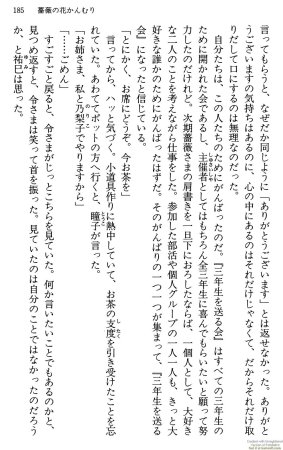 185　薔薇の花かんむり
言ってもらうと、なぜだか同じように「ありがとうございます」とは返せなかった。ありがと
うございますの気持ちはあるのに、心の中にあるのはそれだけじゃなくて、だからそれだけ取
りだして口にするのは無理なのだった。
　自分たちは、この人たちのためにがんばったのだ。『三年生を送る会』はすべての三年生の
ために開かれた会であるし、主催者としてはもちろん全三年生に喜んでもらいたいと願って努
力したのだけれど、次期薔薇さまの肩書きを一旦下におろしたならば、一個人として、大好き
な二人のことを考えながら仕事をした。参加した部活や個人グループの一人一人も、きっと大
好きな誰かのためにがんばったはずだ。そのがんばりの一つ一つが集まって、『三年生を送る
会』になったと信じている。
「とにかく、お席にどうぞ。今お茶を」
　言ってから、ハッと気づく。小道具作りに熱中していて、お茶の支度を引き受けたことを忘
れていた。あわててポットの方へ行くと、瞳子が言った。
「お姉さま、私と乃梨子でやりますから」
「……ごめん」
　すごすごと戻ると、令さまがじっとこちらを見ていた。何か言いたいことでもあるのかと、
見つめ返すと、令さまは笑って首を振った。見ていたのは自分のことではなかったのだろう
か、と祐巳は思った。